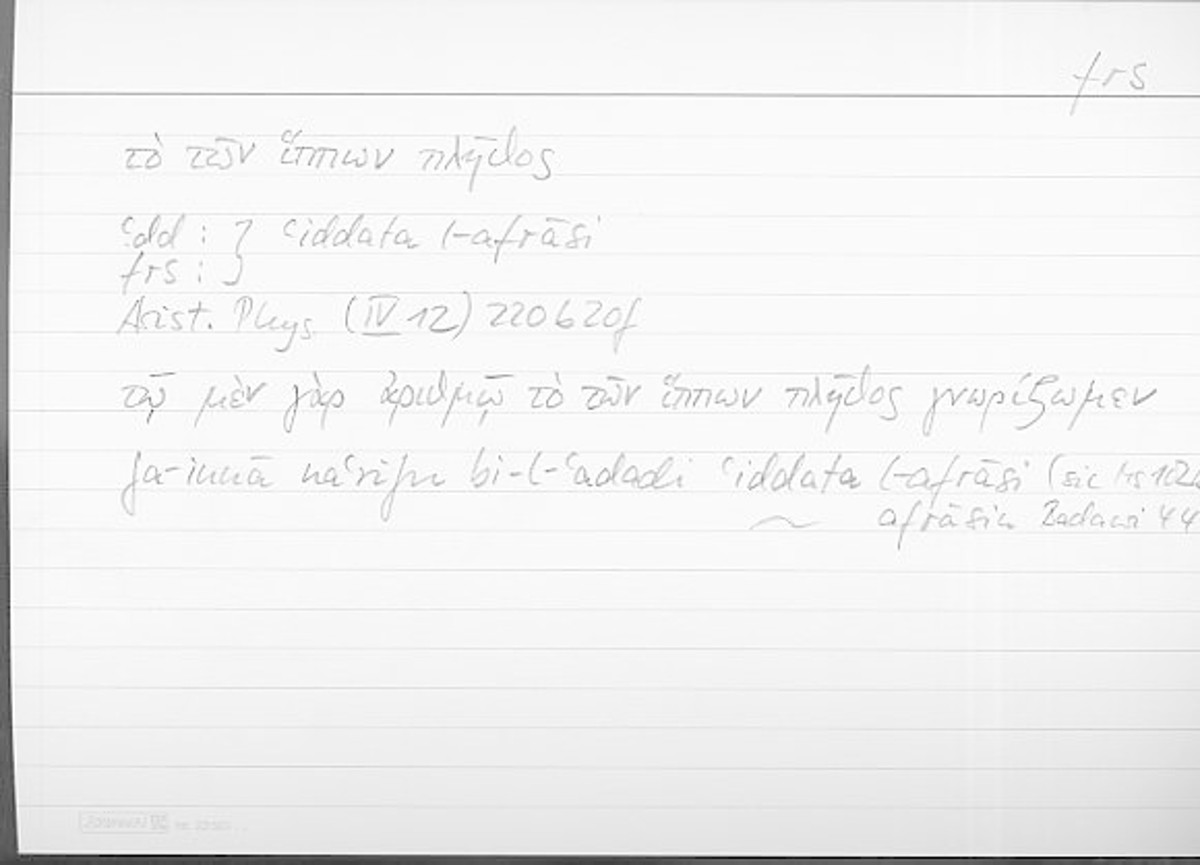 frs
τὸ τῶν ἵππων πλῆθος
ʿdd : } ʿiddata l-afrāsi
frs : }
Arist. Phys (IV 12) 220b20f
τῷ μὲν γὰρ ἀριθμῷ τὸ τῶν ἵππων πλῆθος γνωρίζωμεν
fa-innā naʿrifu bi-l-ʿadadi ʿiddata l-afrāsi (sic Hs 102
afrāsin Badawi 44